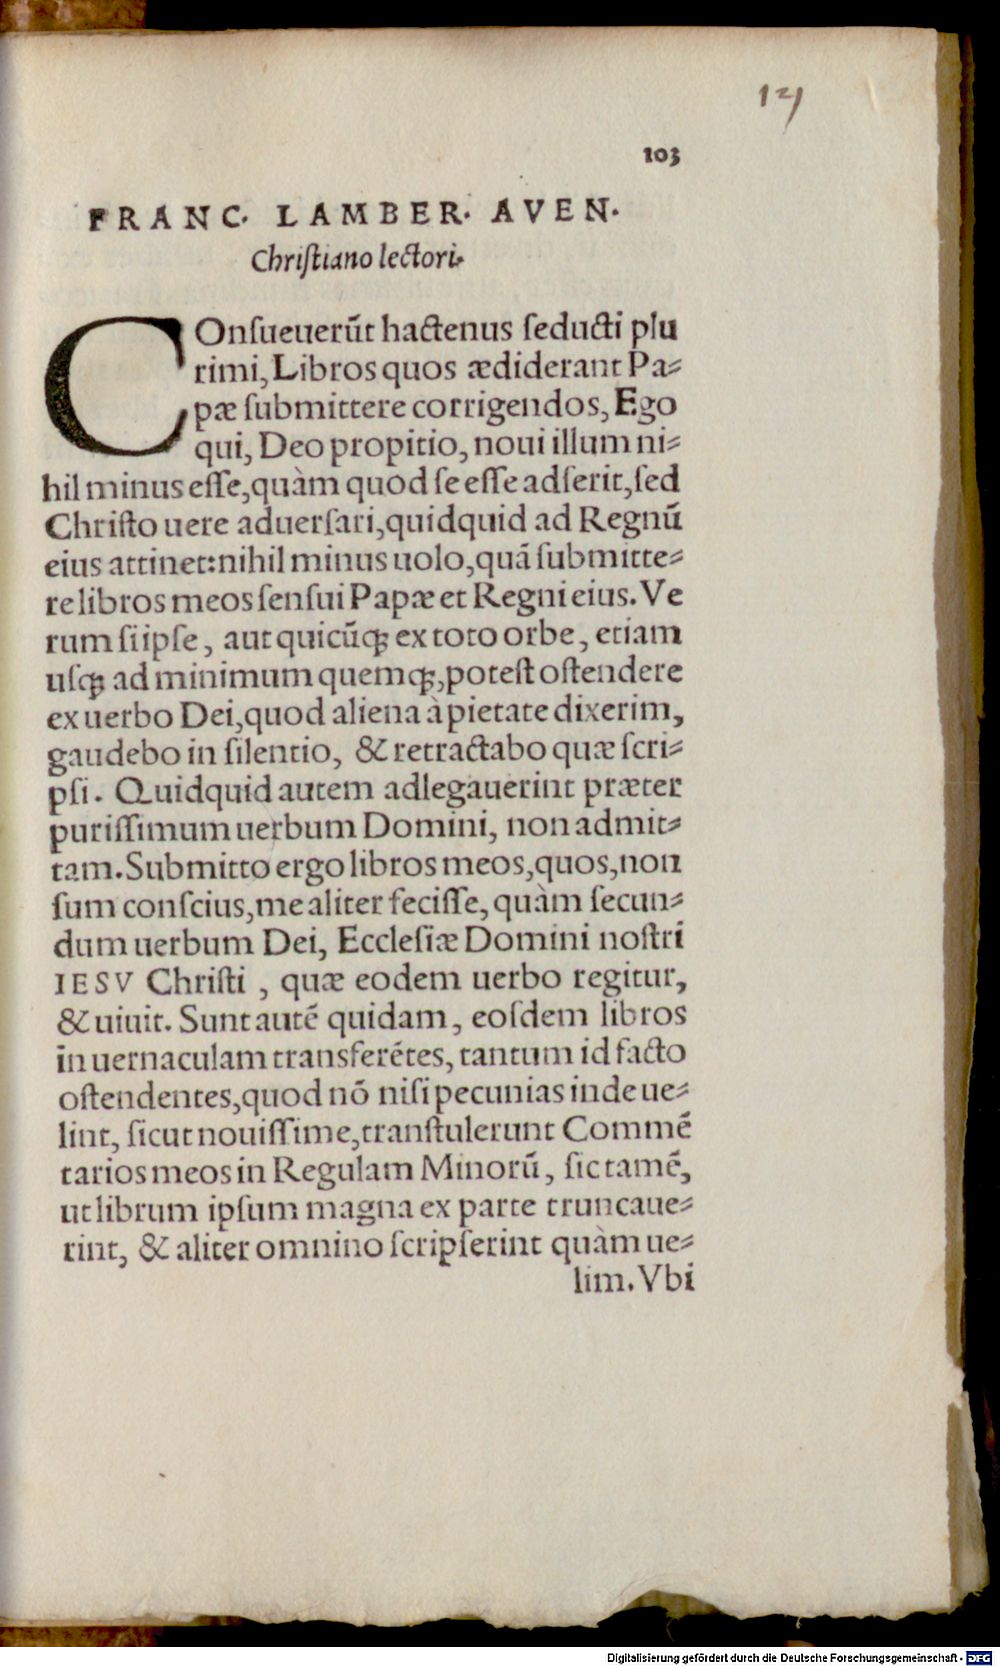 121
103
FRANC. LAMBER. AVEN.
Chriſtiano lectori.
COnſueuerūt hactenus ſeducti plu
rimi, Libros quos ædiderant Pa⸗
pæ ſubmittere corrigendos, Ego
qui, Deo propitio, noui illum ni⸗
hil minus eſſe, quàm quod ſe eſſe adſerit, ſed
Chriſto uere aduerſari, quidquid ad Regnū
eius attinet: nihil minus uolo, quā ſubmitte⸗
re libros meos ſenſui Papæ et Regni eius. Ve
rum ſi ipſe, aut quicūqꝫ ex toto orbe, etiam
uſqꝫ ad minimum quemqꝫ, poteſt oſtendere
ex uerbo Dei, quod aliena à pietate dixerim,
gaudebo in ſilentio, & retractabo quæ ſcri⸗
pſi. Quidquid autem adlegauerint præter
puriſſimum uerbum Domini, non admit⸗
tam. Submitto ergo libros meos, quos, non
ſum conſcius, me aliter feciſſe, quàm ſecun⸗
dum uerbum Dei, Eccleſiæ Domini noſtri
IESV Chriſti, quæ eodem uerbo regitur,
& uiuit. Sunt autē quidam, eoſdem libros
in uernaculam transferētes, tantum id facto
oſtendentes, quod nō niſi pecunias inde ue⸗
lint, ſicut nouiſſime, tranſtulerunt Commē
tarios meos in Regulam Minorū, ſic tamē,
ut librum ipſum magna ex parte truncaue⸗
rint, & aliter omnino ſcripſerint quàm ue⸗
lim. Vbi
Digitalisierung gefördert durch die Deutsche Forschungsgemeinschaft - DFG